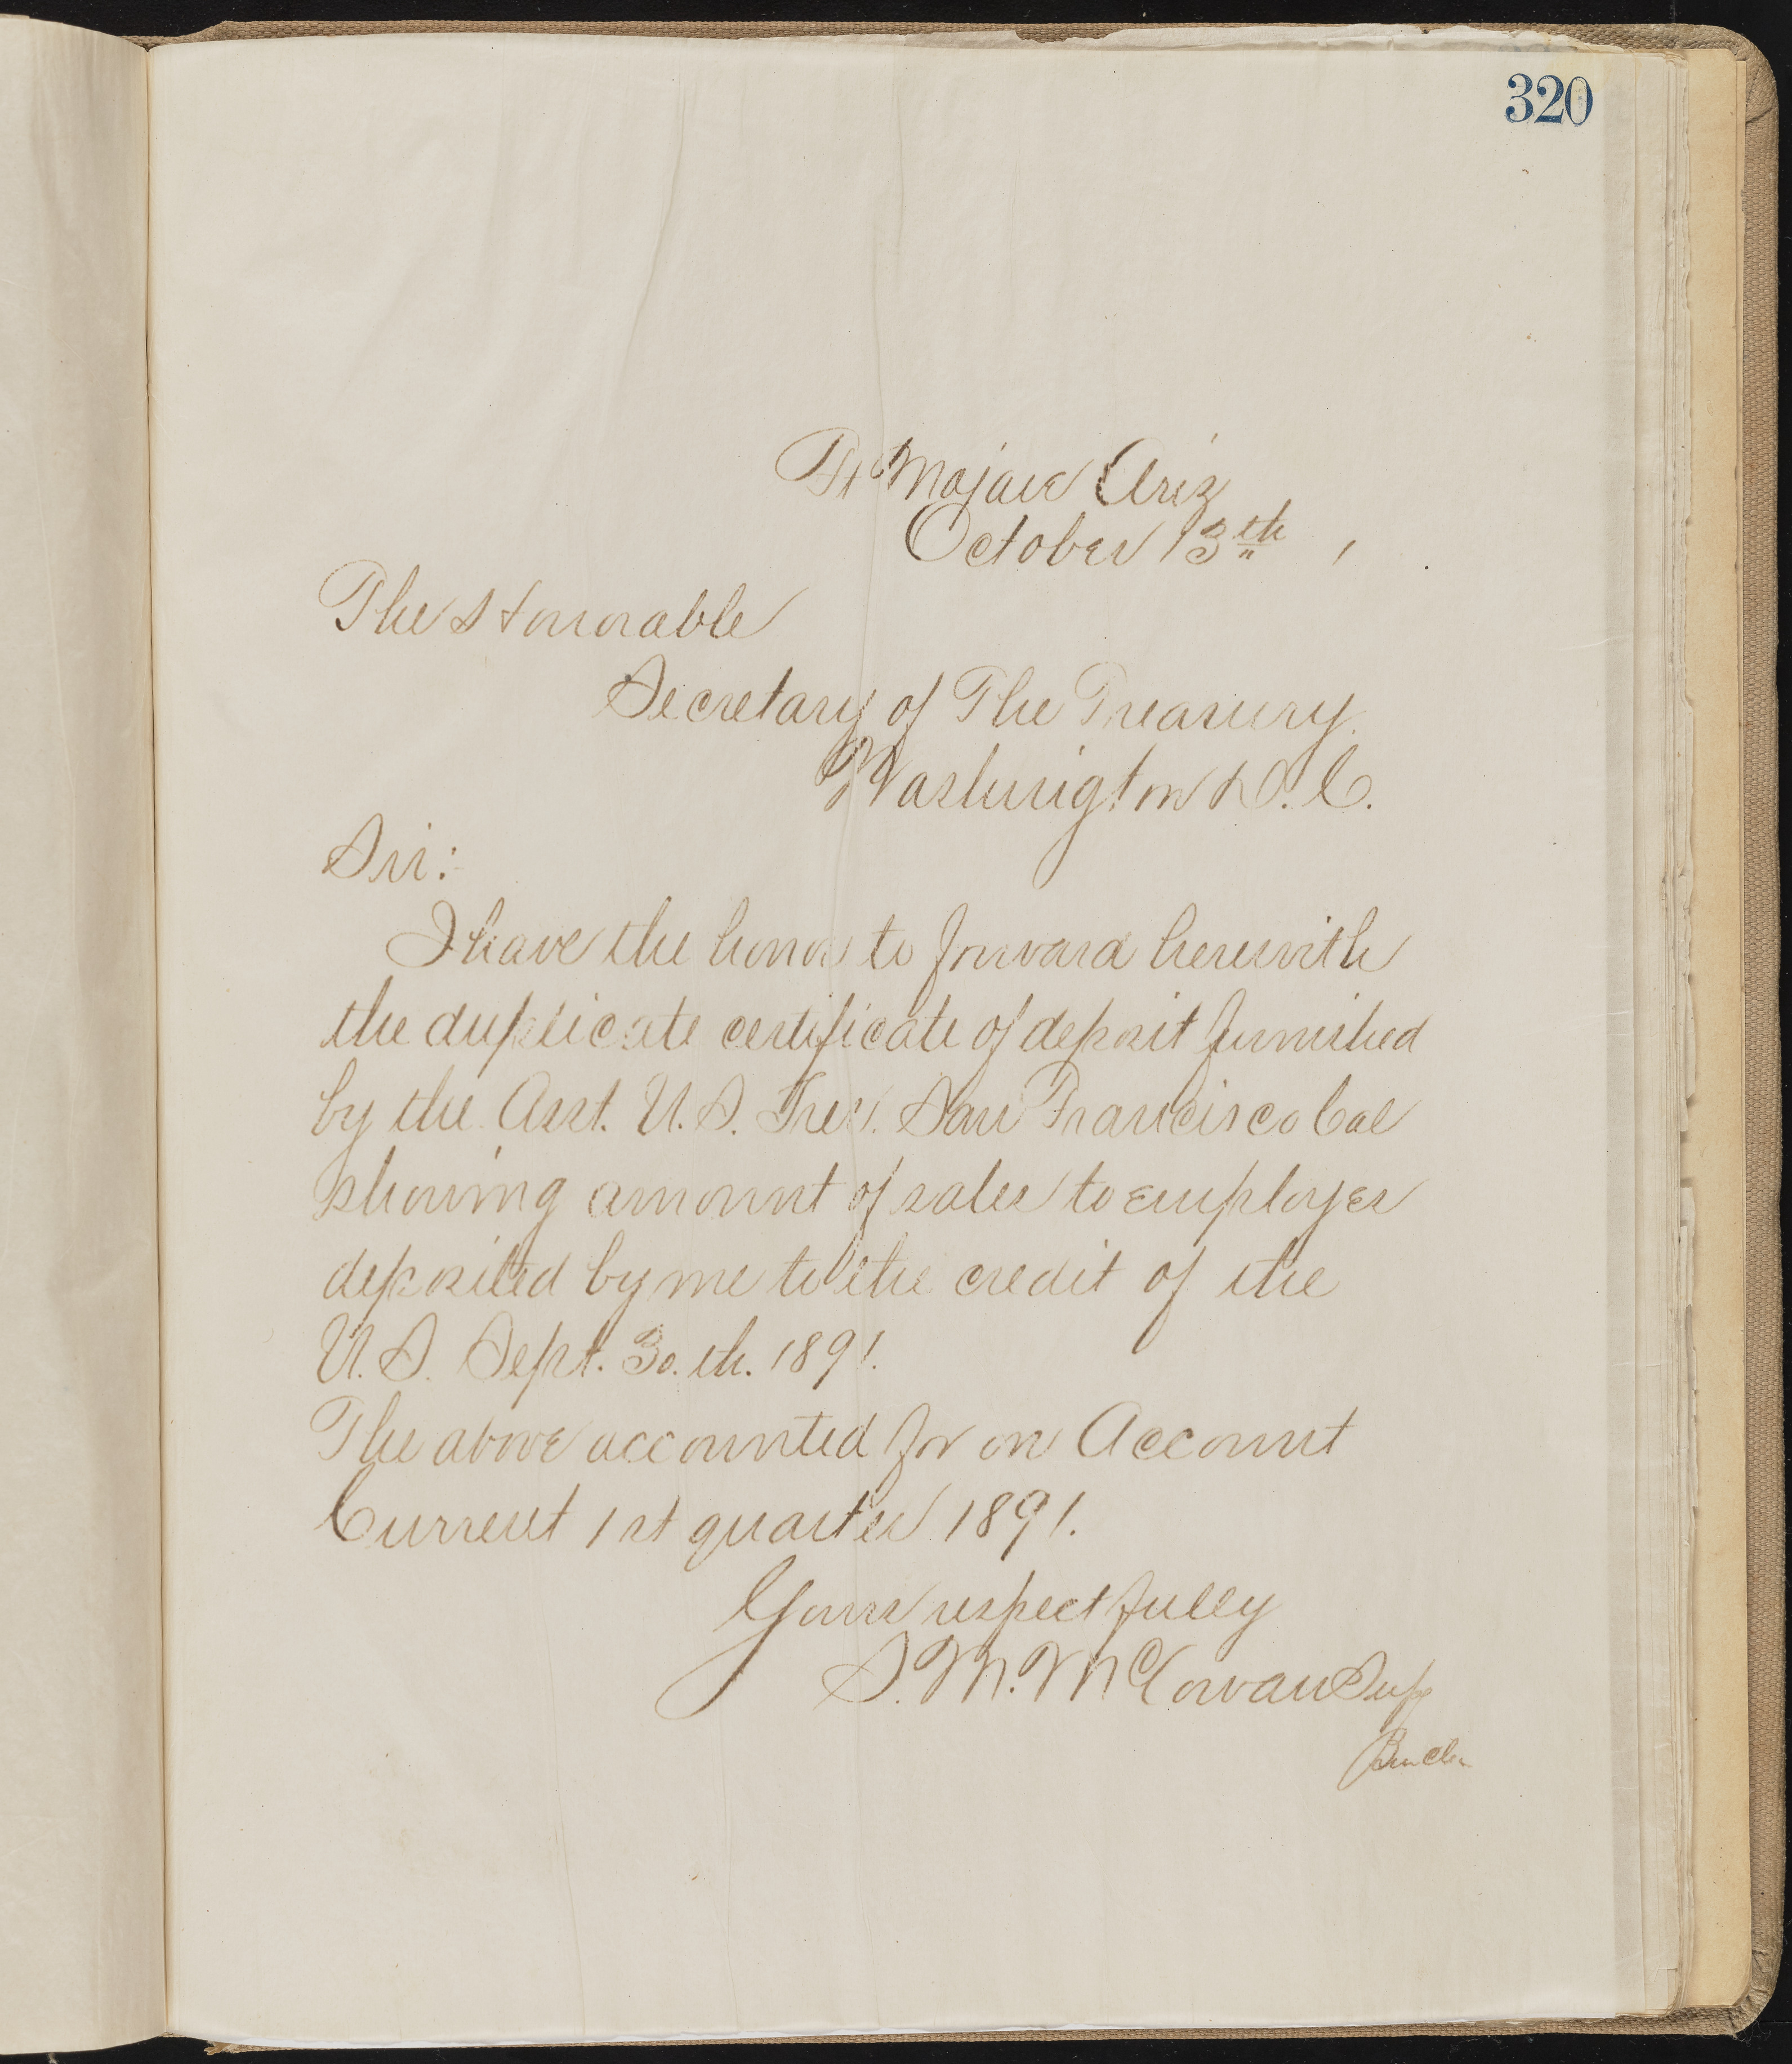 320
Ft Mojave Ariz
October 13th,
The Honorable
Secretary of The Treasury.
Washington D.C.
Sir:
I have the honor to forward herewith
the duplicate certificate of deposit furnished
by the Asst. U.S. Tres. San Francisco Cal
showing amount of sales to employes
deposited by me to the credit of the
U.S. Sept. 30.th. 1891.
The above accounted for on Account
Current 1st quarter 1891.
Yours respectfully
S. M. McCowan Supt